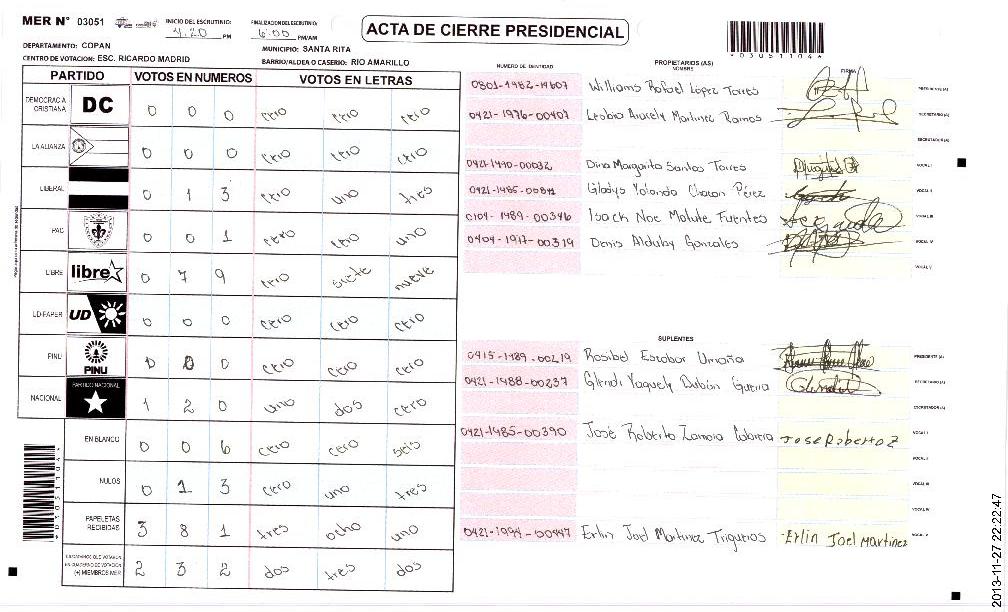 MER N° 03051 INICIO DEL ESCRUTINIO: 4:20 PM FINALIZACION DEL ESCRUTINIO: 6:00 PM/AM
ACTA DE CIERRE PRESIDENCIAL
DEPARTAMENTO: COPAN MUNICIPIO: SANTA RITA
CENTRO DE VOTACION: ESC. RICARDO MADRID BARRIO/ALDEA O CASERIO: RIO AMARILLO
*03051104*
PARTIDO VOTOS EN NUMEROS VOTOS EN LETRAS
DEMOCRACIA CRISTIANA DC 0 0 0 cero cero cero
LA ALIANZA 0 0 0 cero cero cero
LIBERAL 0 1 3 cero uno tres
PAC 0 0 1 cero cero uno
LIBRE libre 0 7 9 cero siete nueve
UD-FAPER UD 0 0 0 cero cero cero
PINU PINU 0 0 0 cero cero cero
NACIONAL PARTIDO NACIONAL 1 2 0 uno dos cero
EN BLANCO 0 0 6 cero cero seis
NULOS 0 1 3 cero uno tres
PAPELETAS RECIBIDAS 3 8 1 tres ocho uno
CIUDADANOS QUE VOTARON EN CUADERNO DE VOTACION (+) MIEMBROS MER 2 3 2 dos tres dos
*03051104*
NUMERO DE IDENTIDAD PROPIETARIOS (AS) NOMBRE FIRMA
0801-1982-14607 Williams Rafael López Torres PRESIDENTE (A)
0421-1976-00407 Lesbia Aracely Martinez Ramos SECRETARIO (A)
ESCRUTADOR (A)
0421-1990-00032 Dina Margarita Santos Torres VOCAL I
0421-1985-00841 Gladys Yolanda Chacon Pérez VOCAL II
0104-1989-00346 Isack Noe Matute Fuentes VOCAL III
0404-1977-00319 Denis Alduby Gonzales VOCAL IV
VOCAL V
SUPLENTES
0415-1989-00219 Rosibel Escobar Umaña PRESIDENTE (A)
0421-1988-00237 Glendi Yaquely Dubón Guerra SECRETARIO (A)
ESCRUTADOR (A)
0421-1985-00390 José Roberto Zamora Jose Roberto Z VOCAL I
VOCAL II
VOCAL III
VOCAL IV
0421-1994-00447 Erlin Joel Martinez Trigueros Erlin Joel Martinez VOCAL V
2013-11-27 22:22:47